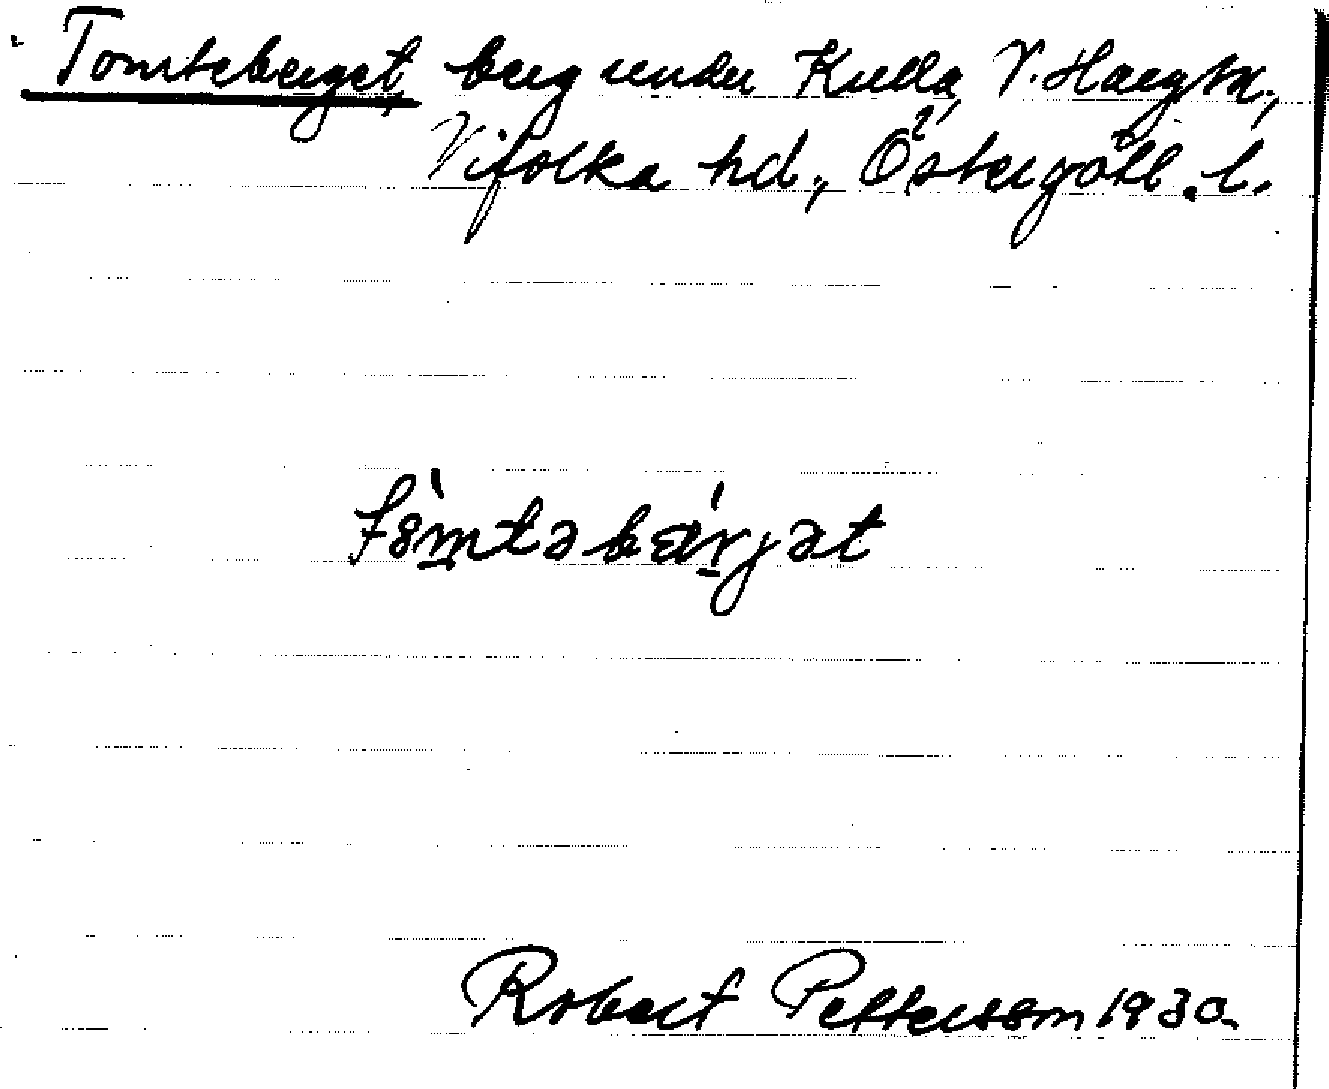 Tomteberget, berg under Kulla, V. Harg sn.,
Vifolka hd., Östergötl. l.
tòmtəbǽrjət
Robert Pettersson 1930.